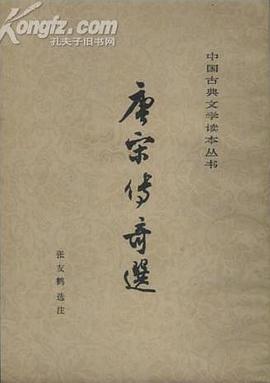 Kongfz.com
孔夫子旧书网
中国古典文学读本丛书
唐宋传奇選
张友鹤 选注